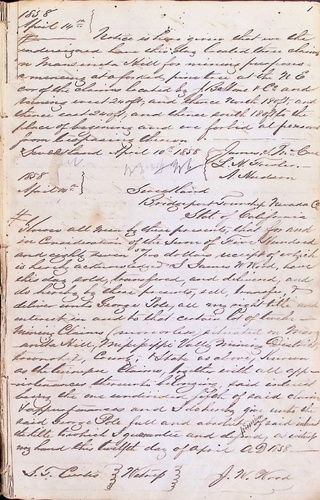 1858
April 14th
Notice is here given that we the
undersigned have this day located three claims
on Manzanita Hill for mining purposes
commencing at a forked pine tree at the N E
cor of the claims located by & Co and
running west 240 ft, and thence North 180 ft, and
thence east 240 ft, and thence south 180 ft to the
place of beginning and we forbid all persons
from trespassing thereon
April 10th 1858
A. Hudson
1858
April 14th
Bridgeport Township Nevada Co
State of California
Know all Men by these presents, that for and
in Consideration of the Sum of Five Hundred
and eighty seven dollars receipt of which
is hereby acknowledged I James W Wood, have
this day sold, transfered, and delivered, and
do hereby by these presents, sell, transfer &
deliver unto George Pole, all my right title and
interest in and to that certain lot of land
Mining Claims situated on Manz
anita Hill, Mississippi Valley Mining District
township, County & State as above, known
as the Claims, together with all app
urtenances thereunto belonging said interest
being the one undivided fifth of said claims
& appurtenances and I do hereby give unto the
said George Pole full and of said interest
the title to which I guarantee and defend, as witness
my hand this twelfth day of april A D 1858
S. T. Curtis } Witness } J. W. Wood